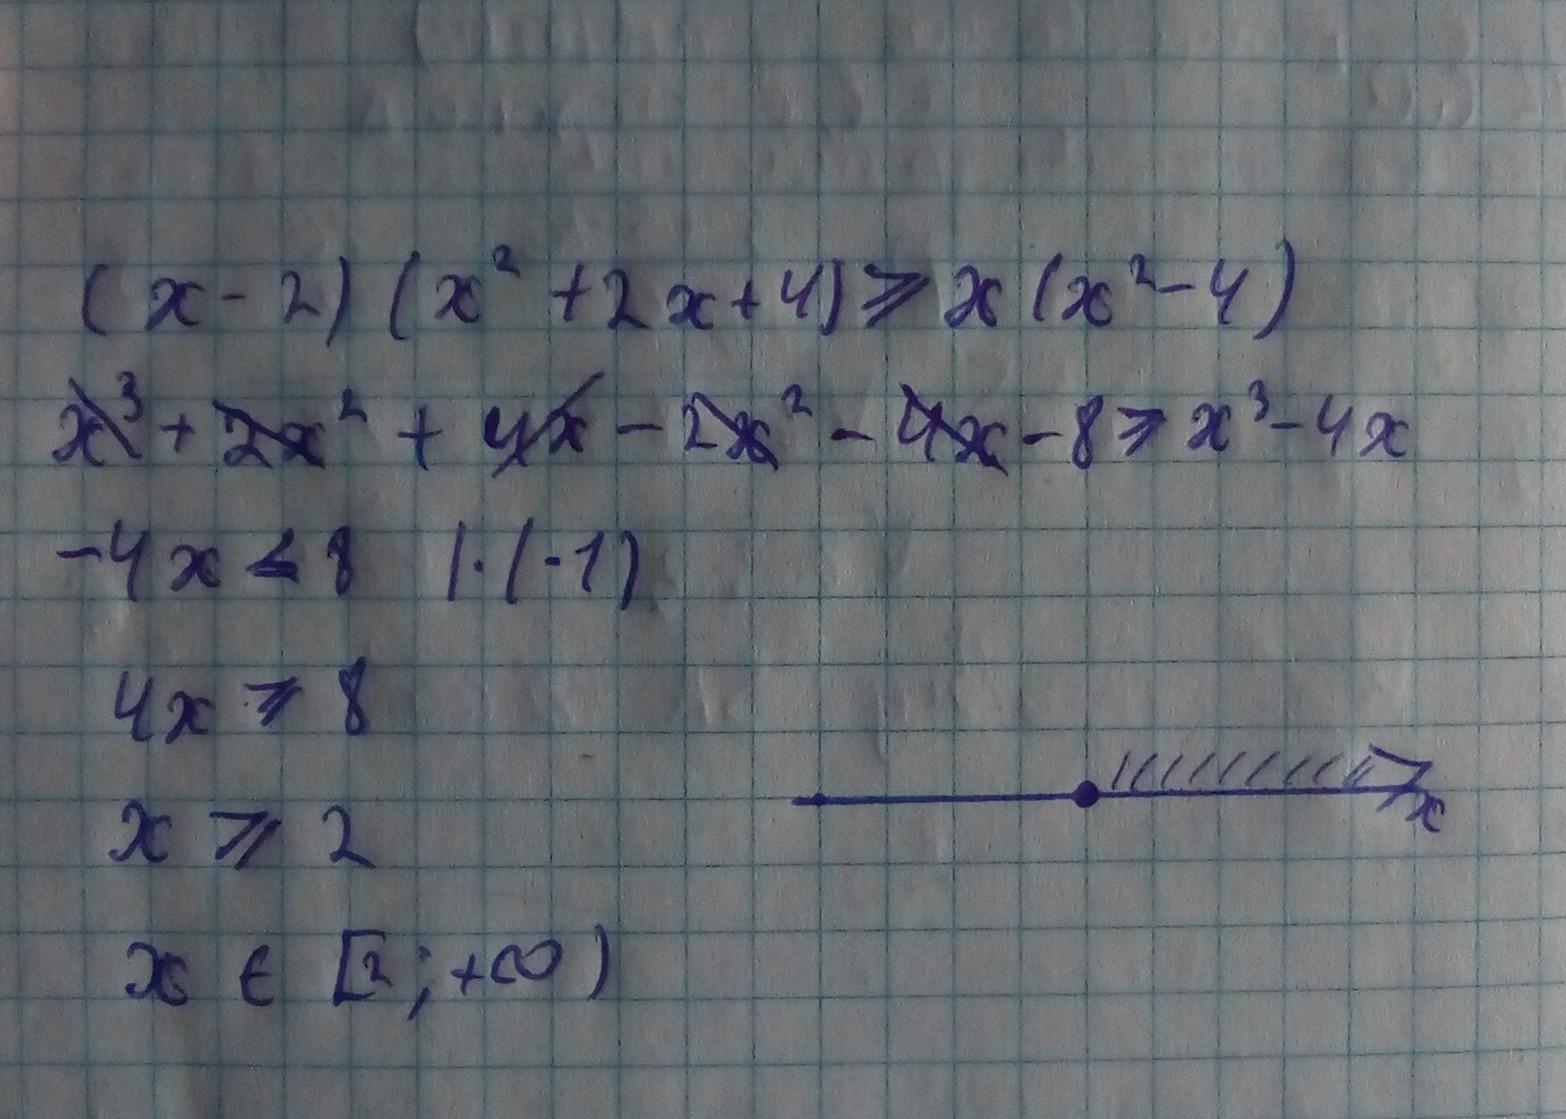 (x-2)(x²+2x+4)≥x(x²-4)
x³+2x²+4x-2x²-4x-8≥x³-4x
-4x≤8 |·(-1)
4x≥8
x≥2
x
x∈[2;+∞)